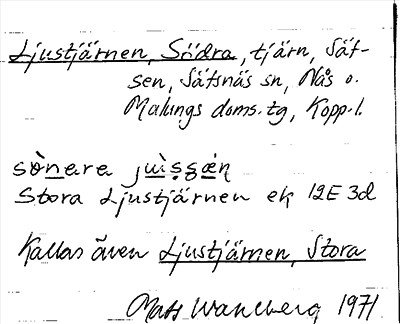 Ljustjärnen, Södra, tjärn, Säf-
sen, Säfsnäs sn, Nås o.
Malungs doms.tg, Kopp.l.
Stora Ljustjärnen ek 12E 3d
Kallas även Ljustjärnen, Stora
Mats Wahlberg 1971